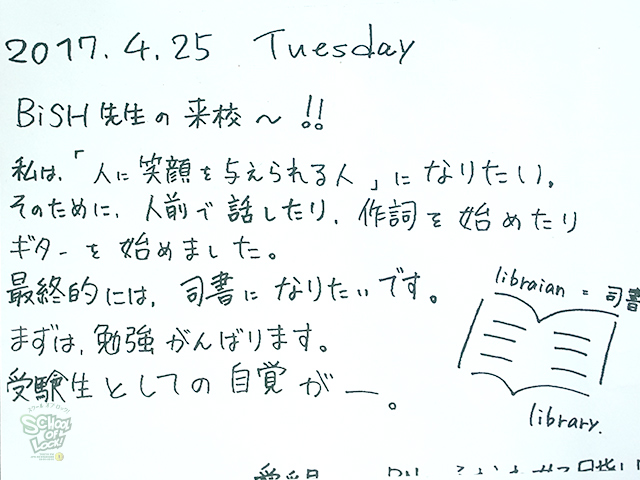 2017.4.25 Tuesday
BiSH先生の来校～!!
私は、「人に笑顔を与えられる人」になりたい。
そのために、人前で話したり、作詞を始めたり
ギターを始めました。
最終的には、司書になりたいです。
libraian = 司書
まずは、勉強がんばります。
受験生としての自覚がー。
library.
SCHOOL OF LOCK!